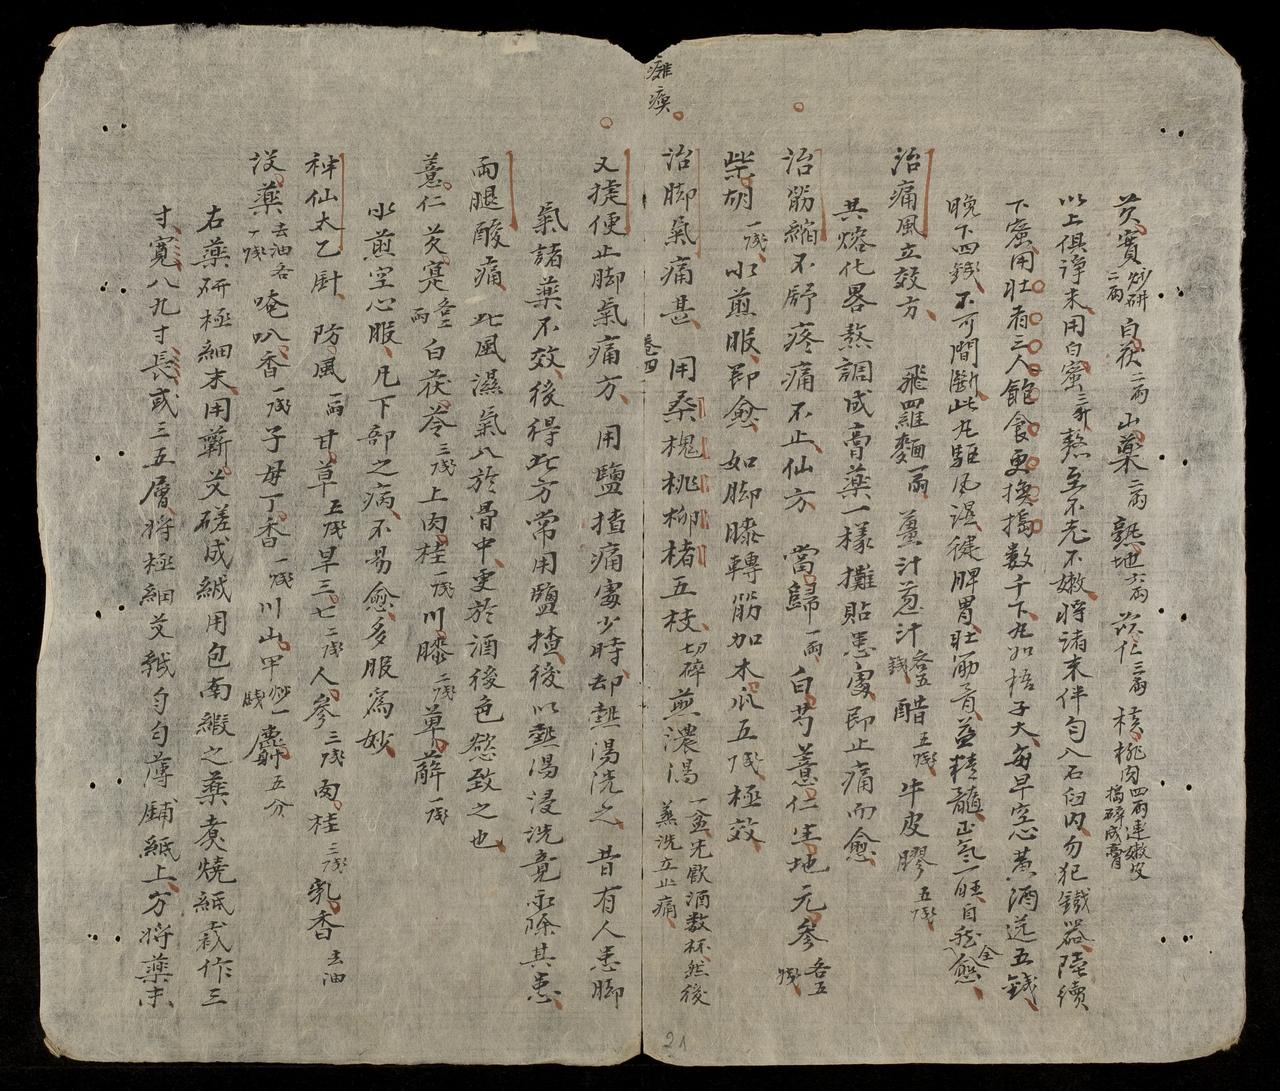 芡實炒研二両白茯二両山藥二両熟地六両茨仁三両核桃肉四両連嫩皮搗碎成膏
以上俱淨末用白蜜三斤熬至不老不嫩將诸末伴匀入石臼内勿犯鐵器陸續
下蜜用壮者三人飽食更換搗数千下丸如梧子大每早空心黄酒送五錢
晚下四錢不可間斷此丸駆风濕健脾胃壮筋骨益精髓正气一旺自然全愈
治痛風立效方飛羅麵一両薑汁葱汁各五錢醋五錢牛皮膠五錢
共熔化畧熬調成膏藥一樣攤貼患處即止痛而愈
治筋縮不舒疼痛不止仙方當歸一両白芍薏仁生地元参各五錢
柴胡一錢水煎服即愈如脚膝轉筋加木瓜五錢極效
治脚氣痛甚用桑槐桃柳楮五枝切碎煎濃湯一盆先飲酒数杯然後薰洗立止痛
癱瘓
卷四
21
又㨗便止脚氣痛方用鹽揸痛處少時却熱湯洗之昔有人患脚
氣諸藥不效後得此方常用鹽揸後以熱湯浸洗竟永除其患
両腿酸痛此風濕氣入於骨中更於酒後色慾致之也
薏仁芡寔各二両白茯苓三錢上肉桂一錢川膝二錢萆薢一錢
水煎空心服凡下部之病不易愈多服為妙
神仙太乙針防風一両甘草五錢早三七二錢人參三錢肉桂三錢乳香去油
没藥去油各一錢唵叭香一錢子母丁香一錢川山甲炒一錢麝五分
右藥研極細末用蘄艾磋成絨用包南緞之藥煮燒紙裁作三
寸寬八九寸長或三五層將極細艾絨匀匀薄鋪紙上方將藥末